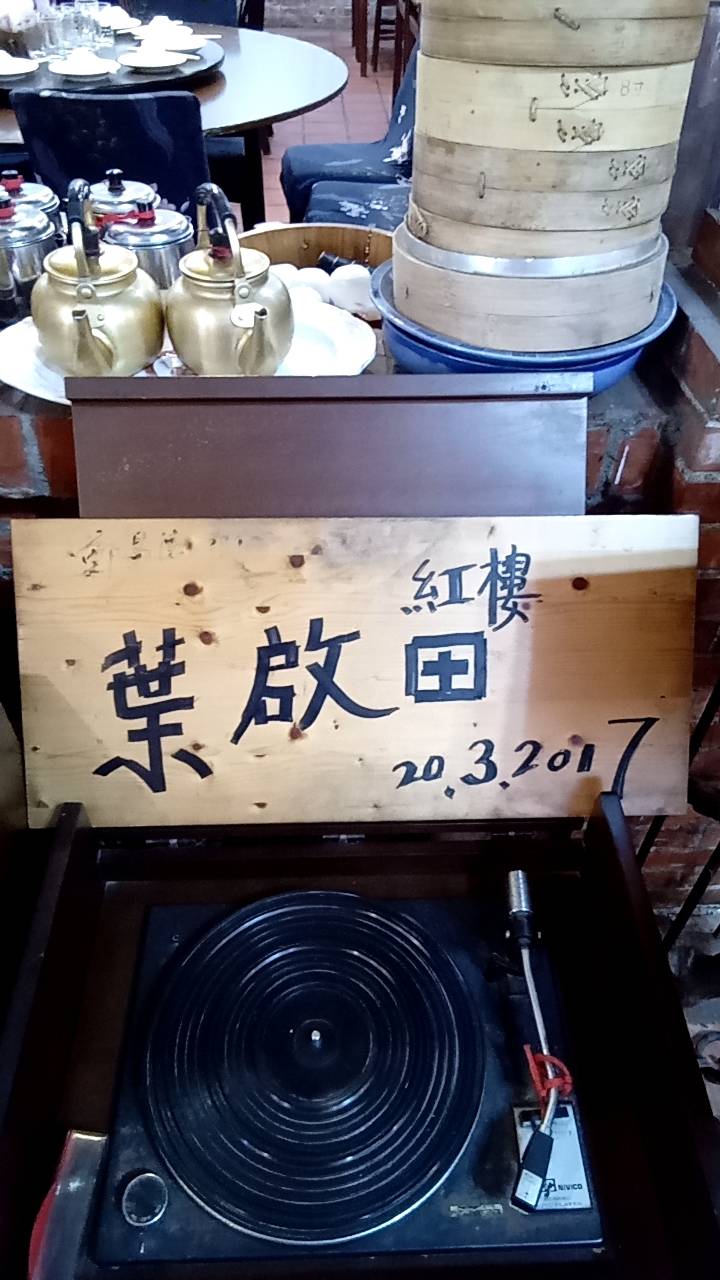 紅樓
葉啟田
20.3.2017
NIVICO